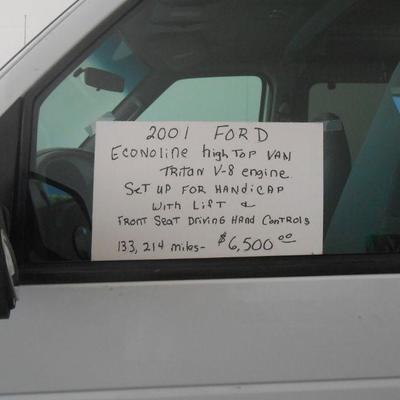 2001 FORD
Econoline high Top VAN
Triton V-8 engine
Set up for Handicap
with Lift &
Front Seat Driving Hand Controls
133,214 miles- $6,500.00